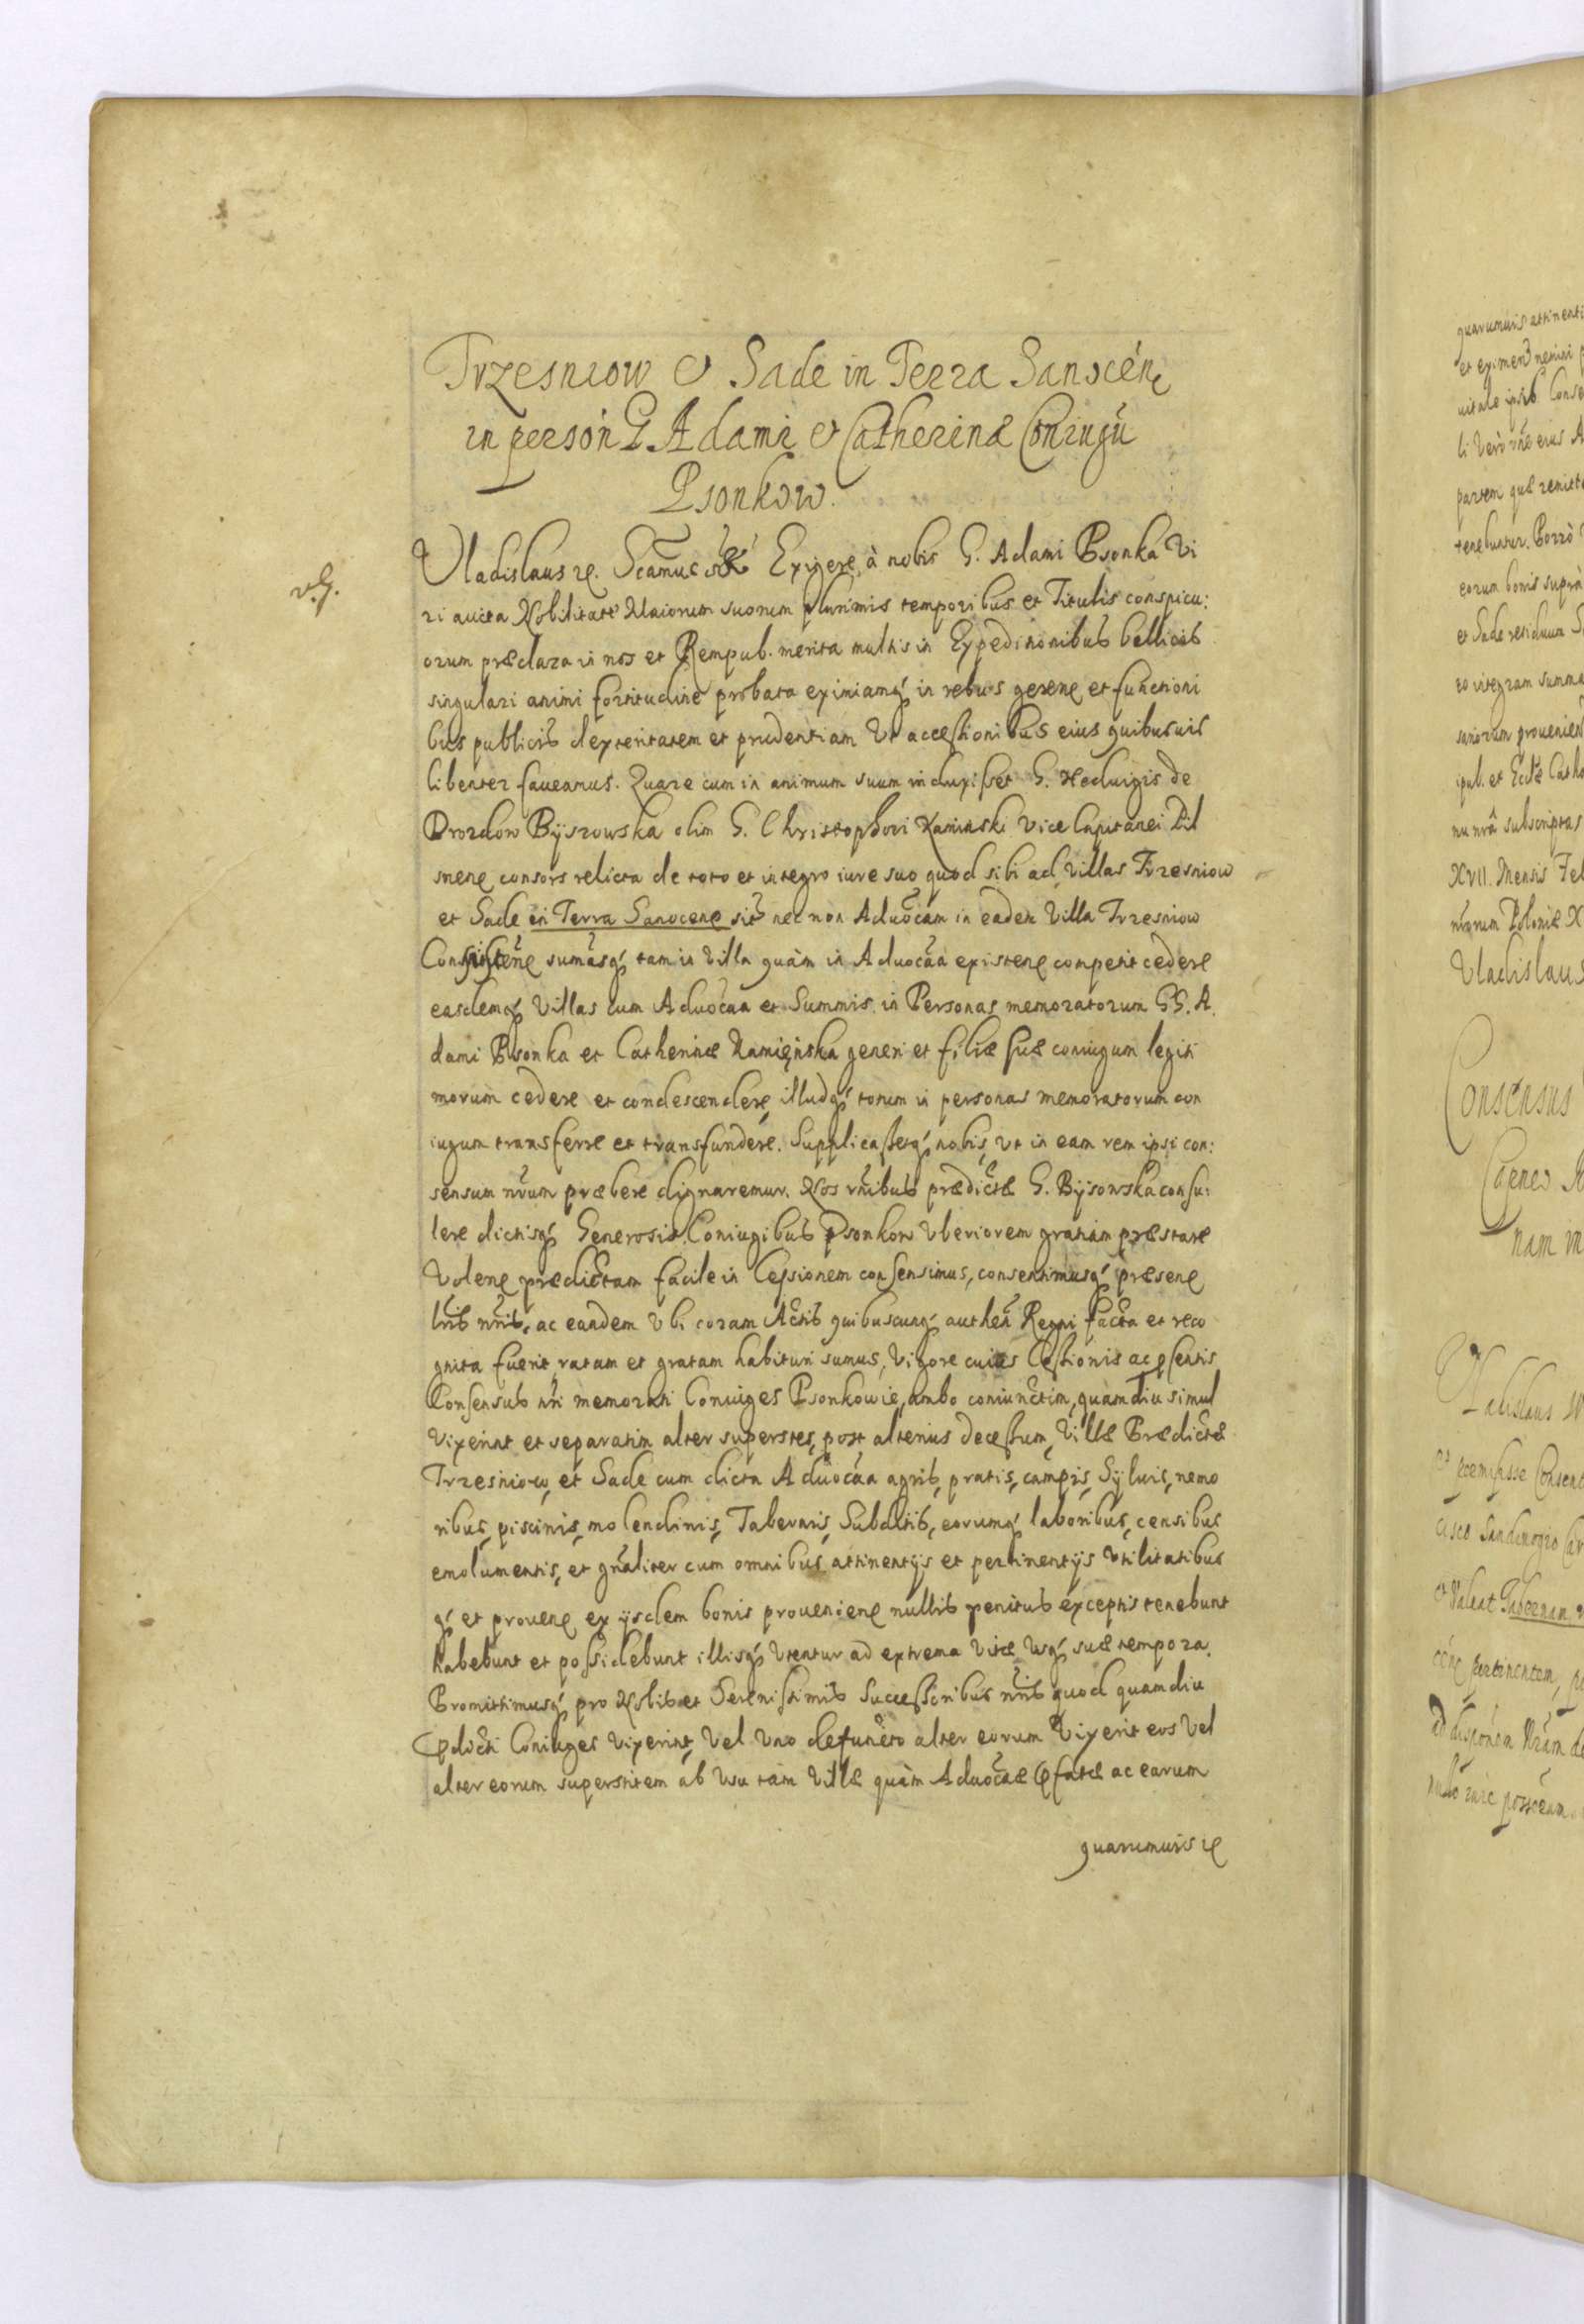 Trzesniow et Sade in Terra Sanocen
in person G. Adami et Catherinæ Coniugū
Psonkow.
v. g.
Vladislaus etc. Exigere à nobis G. Adami Psonka Vi
ri auita Nobilitate Maiorum suorum plurimis temporibus et Titulis conspicu:
orum præclara in nos et Rempub. merita multis in Expeditionibus bellicis
singulari animi fortitudine probata eximiamq́ in rebus geren et functioni
bus publicis dexteritatem et prudentiam Vt accessionibus eius quibusuis
libenter faueamus. Quare cum in animum suum induxisset G. Heduigis de
Drozdow Byszowska olim G. Christophori Kaminski Vice Capitanei Pil
snen consors relicta de toto et integro iure suo quod sibi ad Villas Trzesniow
et Sade in Terra Sanocen sit nec non Aduocām in eadem Villa Trzesniow
sumasq́ tam in Villa quàm in Aduocāa existen competit cedere
easdemq́ Villas cum Aduocāa et Summis in Personas memoratorum GG. A.
dami Psonka et Catherinæ Kamięnska generi et filiæ suæ coniugum legiti
morum cedere et condescendere, illudq́ totum in personas memoratorum con
iugum transferre et transfundere. Supplicassetq́ nobis, vt in eam rem ipsi con:
sensum nr̄um præbere dignaremur. Nos prædictæ G. Bysowska consu:
lere dictisq́ Generosis Coniugibus Psonkow Vberiorem gratiam præstare
Volen prædictam facile in Cessionem consensimus, consentimusq́ præsen
lr̄is nr̄is, ac eandem Vbi coram Actis quibuscunq́ authen Regni facta et reco
gnita fuerit, ratam et gratam habituri sumus, Vigore cuius Cessionis ac pſentis
Consensus nr̄i memorati Coniuges Psonkowie, ambo coniunctim, quamdiu simul
vixerint et separatim alter superstes, post alterius decessum, Villæ Prædictæ
Trzesniow, et Sade cum dicta Aduocāa agris, pratis, campis, Syluis, nemo
ribus, piscinis, molendinis, Tabernis, Subditis, eorumq́ laboribus, censibus
emolumentis, et gn̄aliter cum omnibus attinentijs et pertinentijs Vtilitatibus
q́ et prouen ex ijsdem bonis prouenien nullis penitus exceptis tenebunt
habebunt et possidebunt illisq́ Vtentur ad extrema Vitæ Vsq́ suæ tempora.
Promittimusq́ pro Nobis et Serenissimis Successoribus nr̄is quod quamdiu
pdicti Coniuges Vixerint, Vel Vno defuncto alter eorum Vixerit eos Vel
alter eorum superstitem ab Vsu tam Villæ quàm Aduocāæ pfatæ ac earum
quarumuis etc
quarumuis attinenti
et eximen nemini
uitale ipsis Conse
li Verò
partem quæ remitt
tenebuntur. Porrò
eorum bonis suprà
et Sade residuum
to integram summa
sanorum prouenien
ipub. et Eccl̄æ Catho
nu nr̄a subscriptas
XVII. Mensis Feb
norum Poloniæ X
Vladislaus
Consensus
nam in
Vladislaus
et permisisse Consent
cisco Sandi
et Valeat Tabernam
pertinentem,
nr̄am de